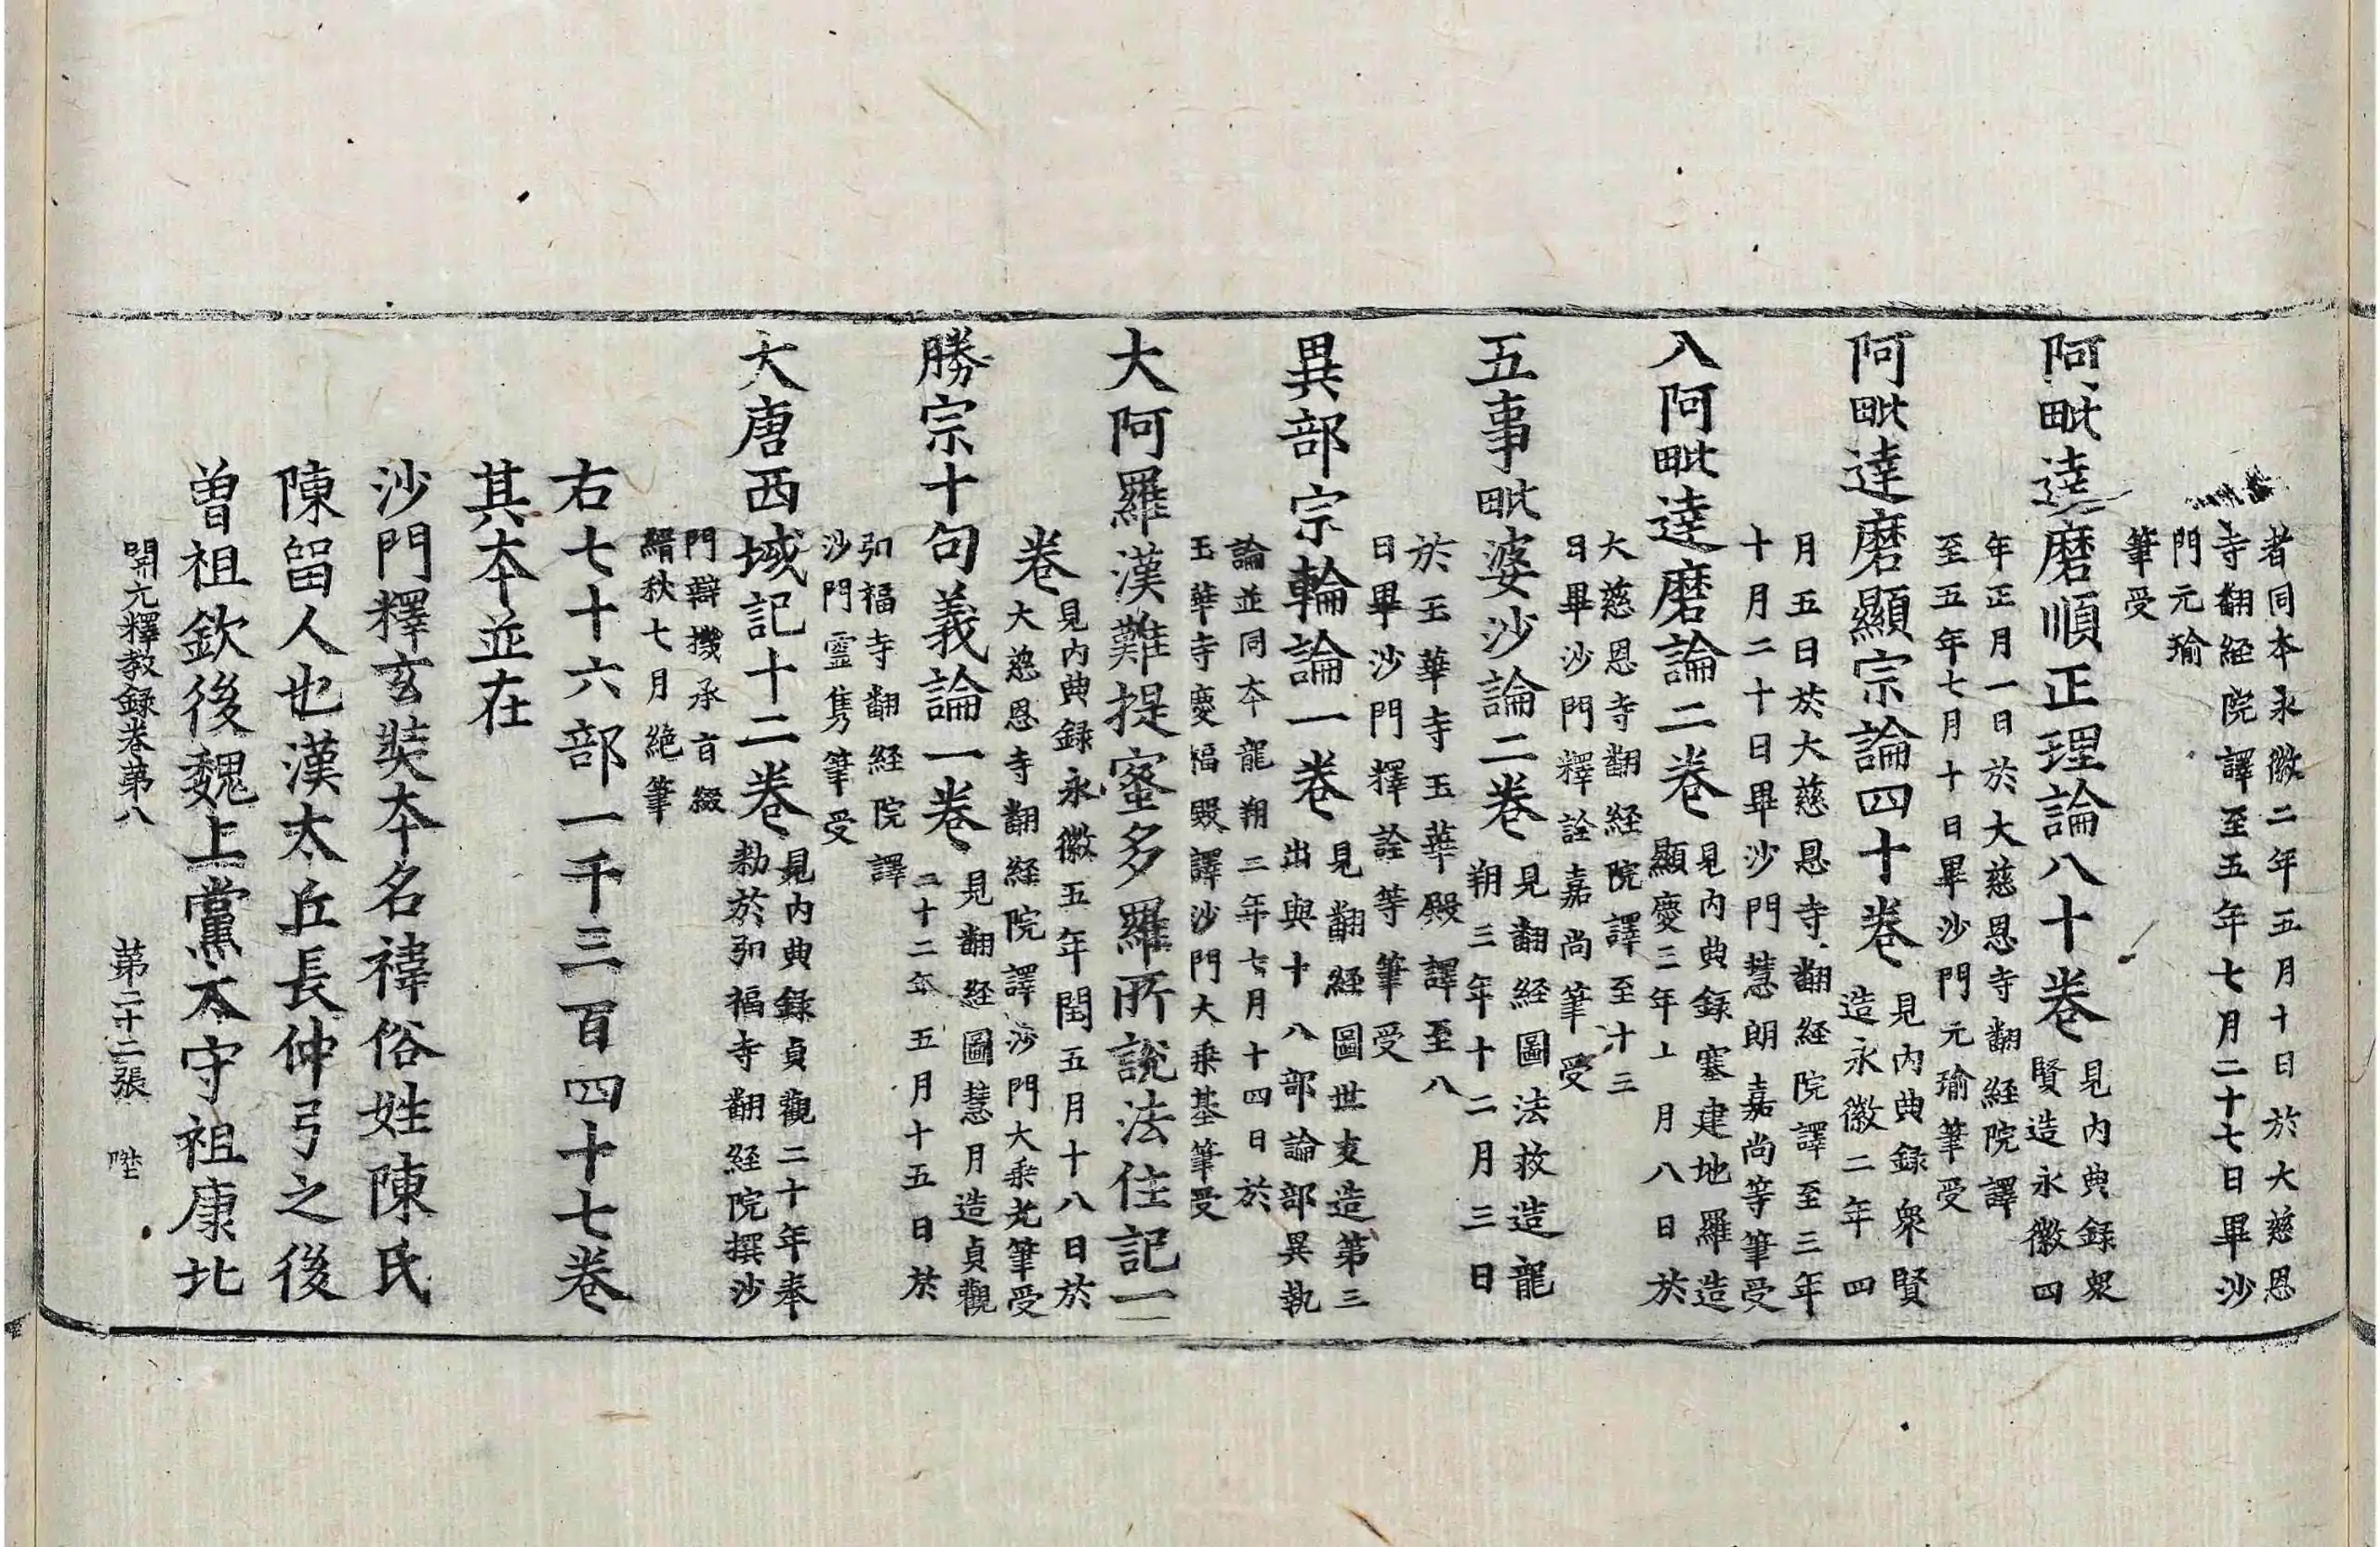 者同本永徽二年五月十日於大慈恩
寺翻経院譯至五年七月二十七日畢沙
門元瑜
筆受
阿毗達磨順正理論八十卷
見内典録衆
賢造永徽四
年正月一日於大慈恩寺翻経院譯
至五年七月十日畢沙門元瑜筆受
阿毗達磨顯宗論四十卷
見内典録衆賢
造永徽二年四
月五日於大慈恩寺翻経院譯至三年
十月二十日畢沙門慧朗嘉尚等筆受
入阿毗達磨論二卷
見内典録塞建地羅造
顯慶三年十月八日於
大慈恩寺翻経院譯至十三
日畢沙門釋詮嘉尚筆受
五事毗婆沙論二卷
見翻経圖法救造龍
朔三年十二月三日
於玉華寺玉華殿譯至八
日畢沙門釋詮等筆受
異部宗輪論一卷
見翻経圖世友造第三
出與十八部論部異執
論並同本龍朔二年七月十四日於
玉華寺慶福殿譯沙門大乗基筆受
大阿羅漢難提蜜多羅所說法住記一
卷
見内典録永徽五年閏五月十八日於
大慈恩寺翻経院譯沙門大乗光筆受
勝宗十句義論一卷
見翻経圖慧月造貞觀
二十二年五月十五日於
弘福寺翻経院譯
沙門靈雋筆受
大唐西域記十二卷
見内典録貞觀二十年奉
勑於弘福寺翻経院撰沙
門辯機承旨綴
緝秋七月絶筆
右七十六部一千三百四十七卷
其本並在
沙門釋玄奘本名褘俗姓陳氏
陳留人也漢太丘長仲弓之後
曽祖欽後魏上黨太守祖康北
開元釋教録卷第八　第二十二張　陞